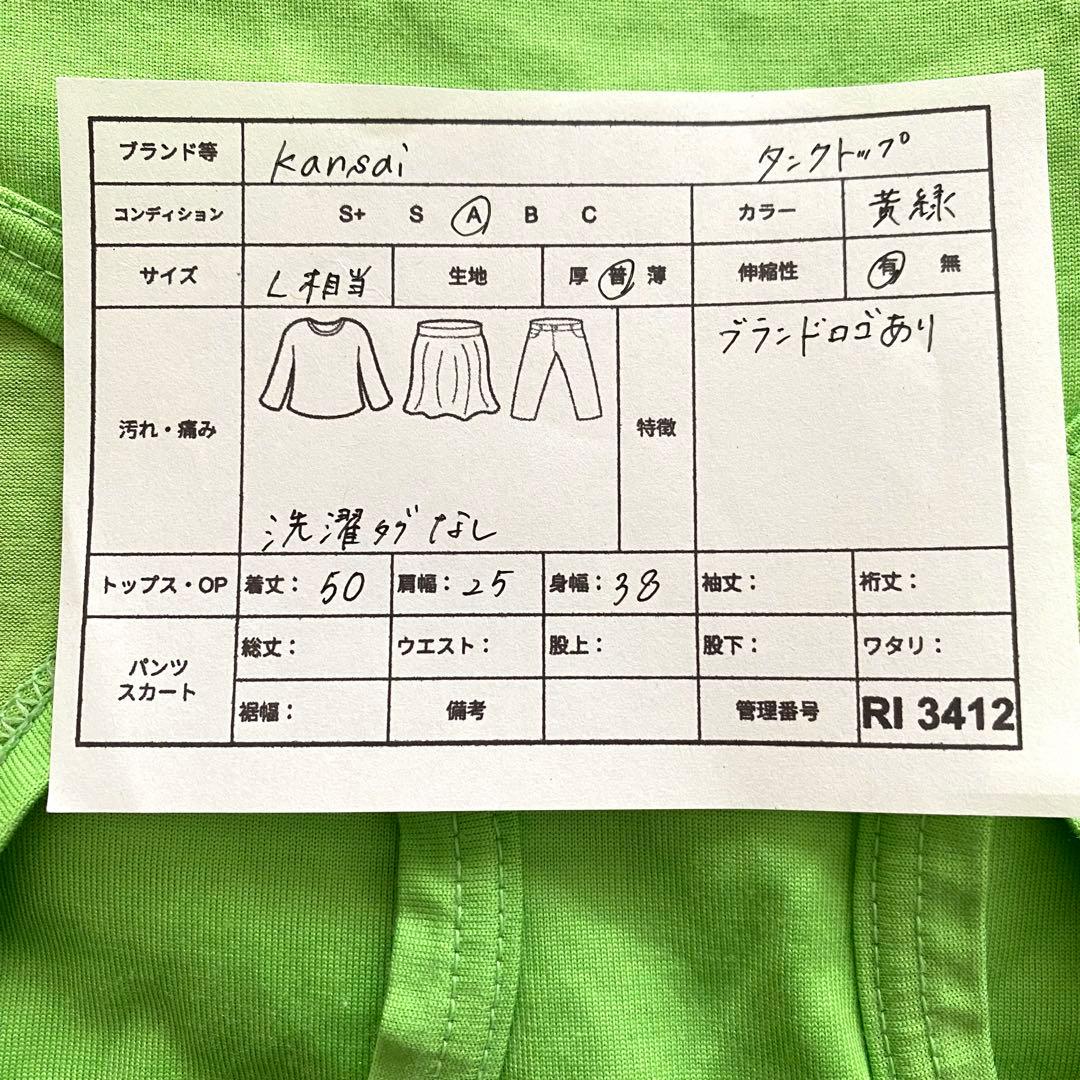 ブランド等 kansai タンクトップ
コンディション S+ S A B C カラー 黄緑
サイズ L相当 生地 厚 普 薄 伸縮性 有 無
汚れ・痛み 洗濯タグなし 特徴 ブランドロゴあり
トップス・OP 着丈: 50 肩幅: 25 身幅: 38 袖丈: 裄丈:
パンツ
スカート
総丈: ウエスト: 股上: 股下: ワタリ:
裾幅: 備考 管理番号 RI 3412